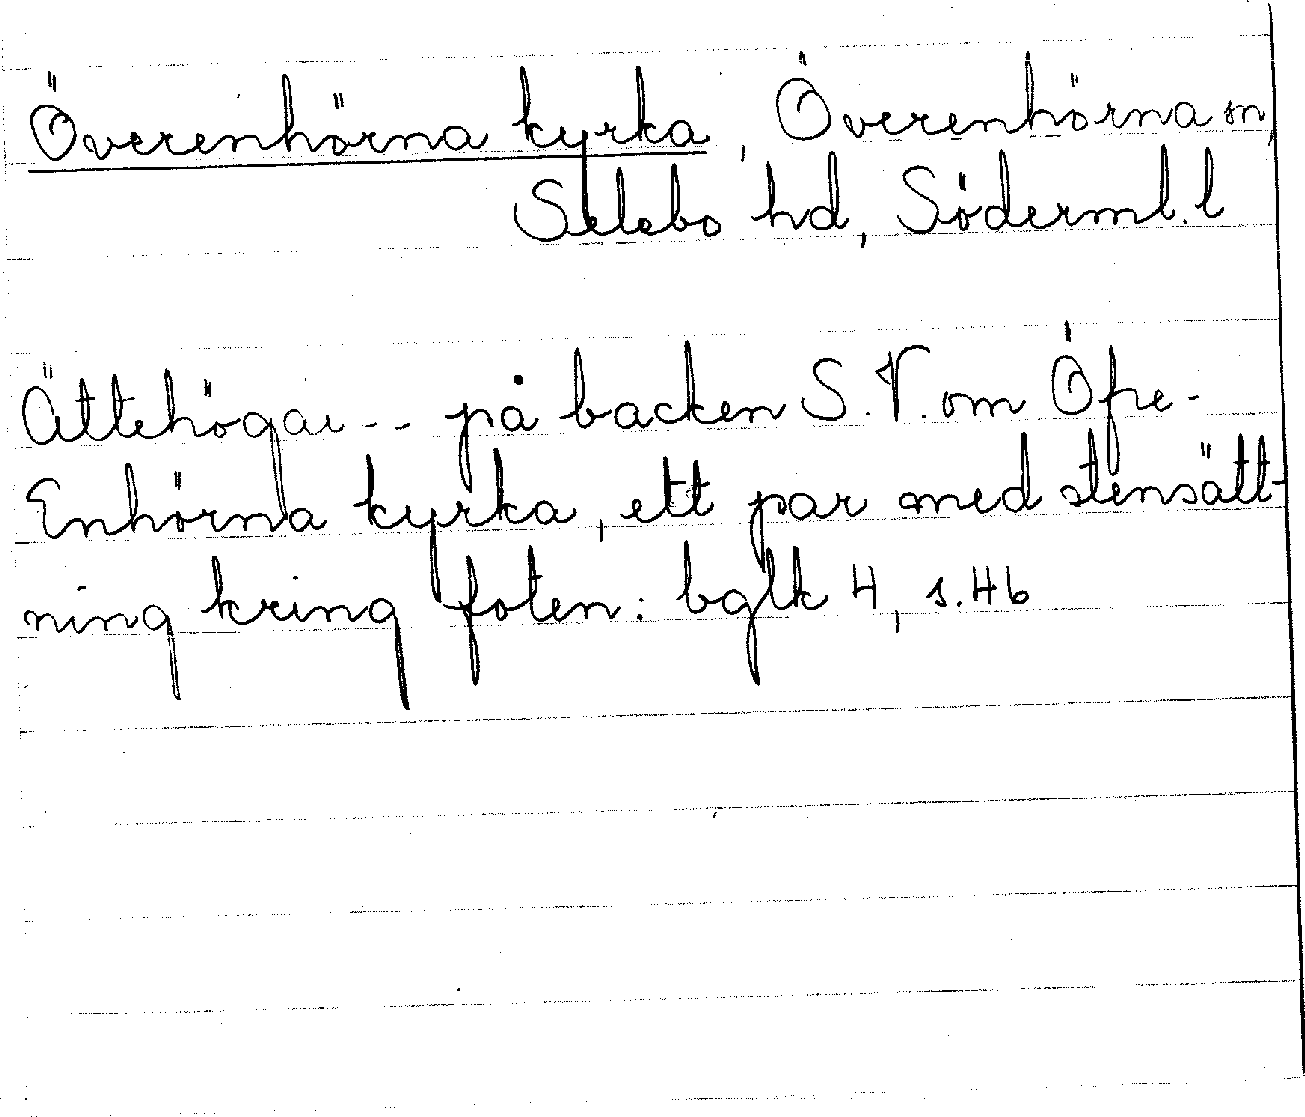 Överenhörna kyrka, Överenhörna sn,
Selebo hd, Söderml. l
Ättehögar -- på backen S.V. om Öfre-
Enhörna kyrka, ett par med stensätt-
ning kring foten: bglk 4, s. 46